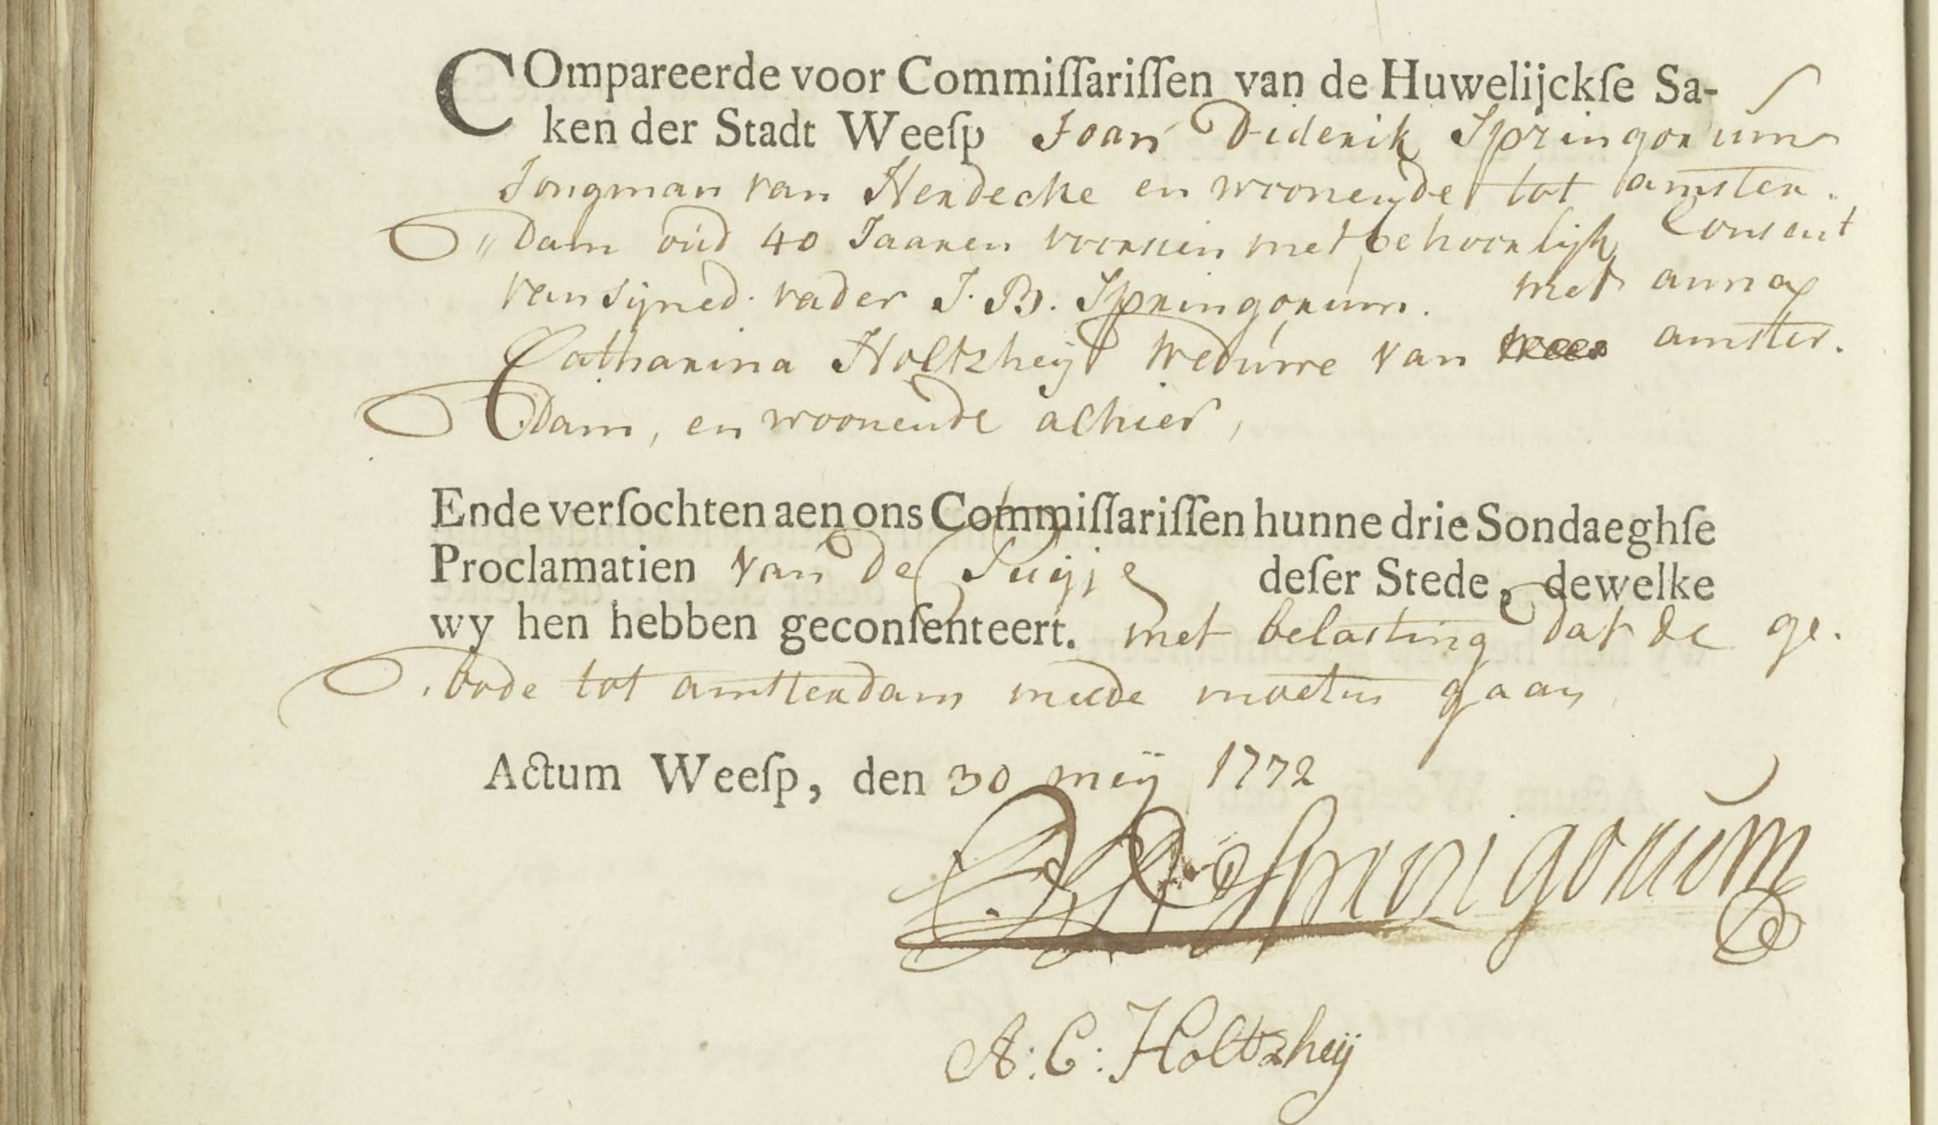 COmpareerde voor Commiſſariſſen van de Huwelijckſe Sa-
ken der Stadt Weeſp Joan Diderik Springorum
Jongman van Herdecke en woonende tot amster.
"Dam oud 40 Jaaren voorsien met behoorlijk Consent
van sijne d. vader J. B. Springorum. met anna
Catharina Holtzheij Weduwe van amster.
Dam, en woonende alhier,
Ende verſochten aen ons Commiſſariſſen hunne drie Sondaeghſe
Proclamatien van de Puyje deſer Stede, dewelke
wy hen hebben geconſenteert. met belasting dat de ge.
boode tot amsterdam meede moeten gaan
Actum Weeſp, den 30 meij 1772
Springorum
A: C: Holtzheij